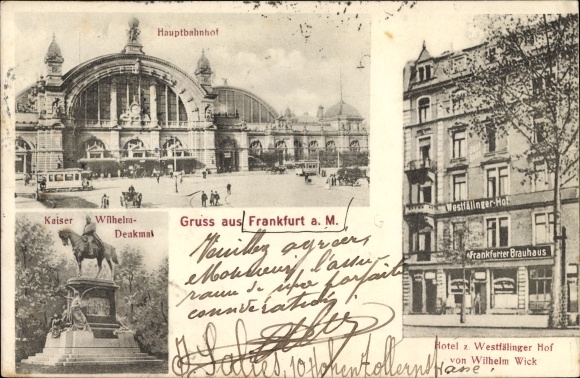 Hauptbahnhof
Kaiser Wilhelm-
Denkmal
Gruss aus Frankfurt a. M.
Westfälinger-Hof
Frankfurter Brauhaus
Veuillez agréer
Monsieur l'assu
rance de ma parfaite
considération
10 Hohenzollernstrasse.
Hotel z. Westfälinger Hof
von Wilhelm Wick